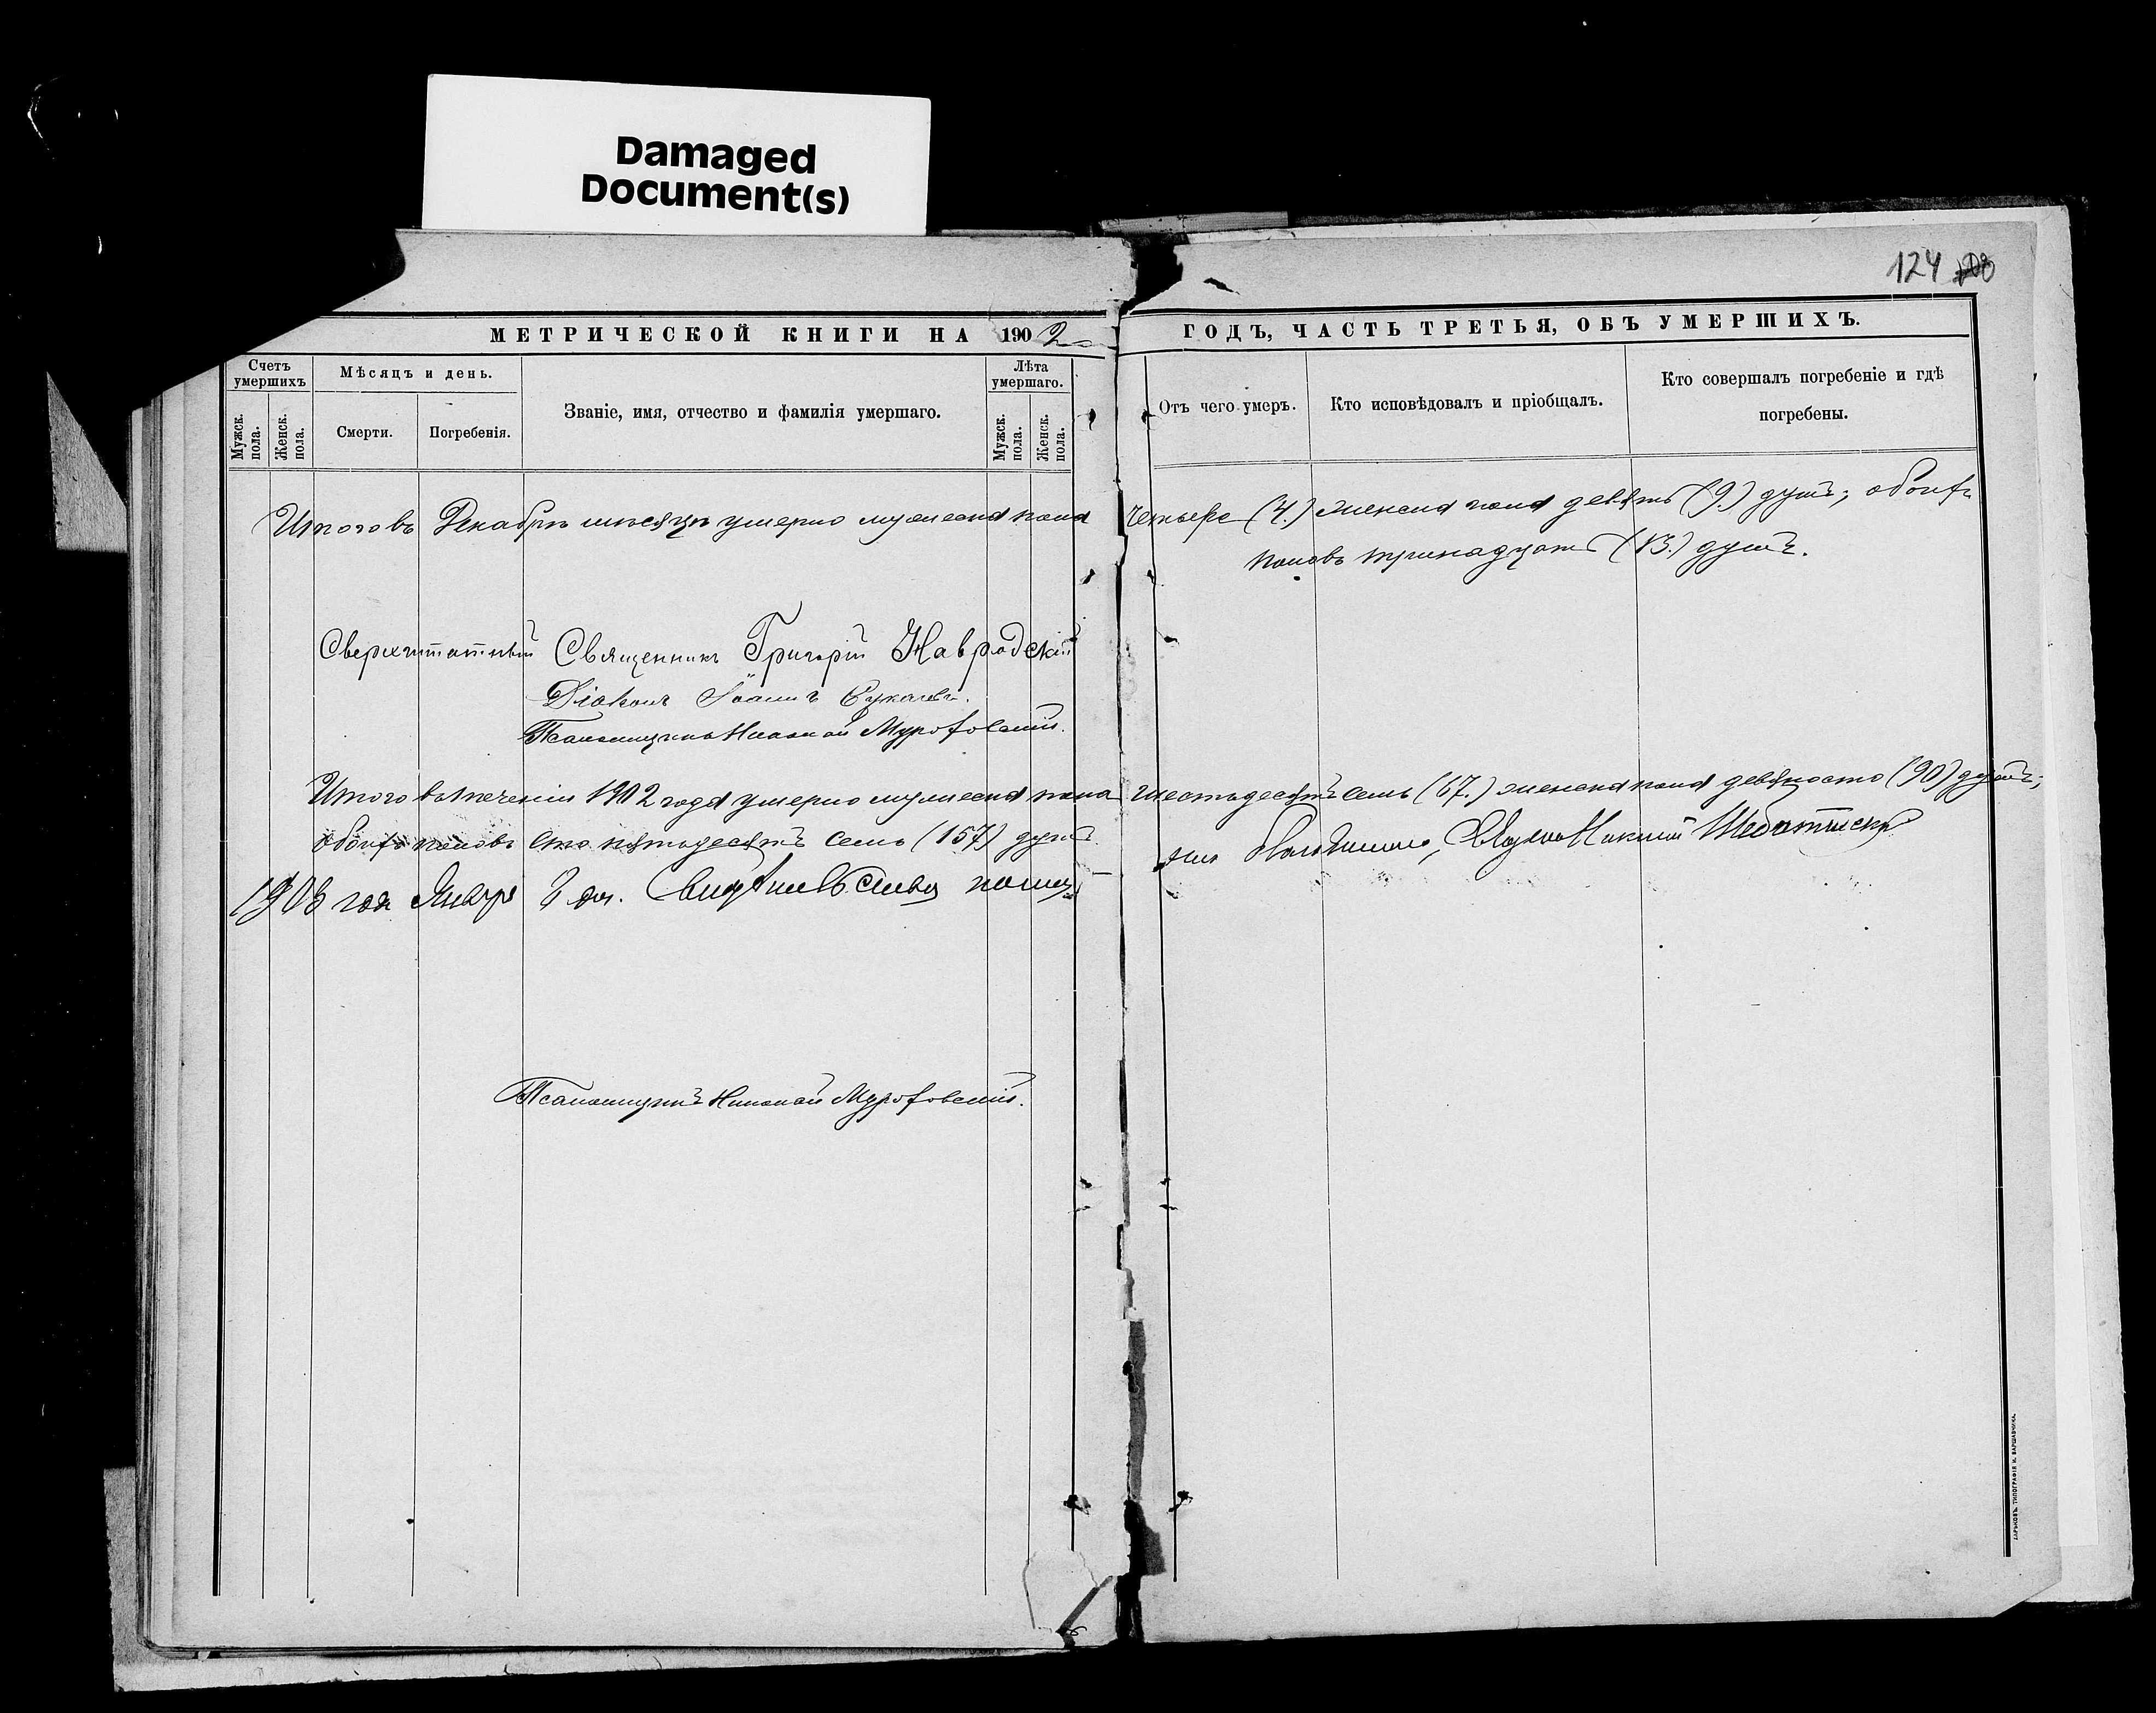 Damaged
Document(s)
124
МЕТРИЧЕСКОЙ КНИГИ НА 1902
ГОДЪ, ЧАСТЬ ТРЕТЬЯ, ОБЪ УМЕРШИХЪ.
Счетъ умершихъ
Мужск. пола.
Женск. пола.
Мѣсяцъ и день.
Смерти.
Погребенія.
Званіе, имя, отчество и фамилія умершаго.
Лѣта умершаго.
Мужск. пола.
Женск. пола.
Отъ чего умеръ.
Кто исповѣдовалъ и пріобщалъ.
Кто совершалъ погребеніе и гдѣ
погребены.
Итого въ Декабрѣ мѣсяцѣ умерло мужеска пола четыре (4.) женска пола девять (9.) душъ; обоихъ
половъ тринадцать (13.) душъ.
Сверхштатный Священникъ Григорій Навродскій
Діаконъ Іоаннъ
Псаломщикъ Николай Мураховскій.
Итого въ теченіи 1902 года умерло мужеска пола шестьдесятъ семь (67.) женска пола девяносто (90) душъ;
обоихъ половъ сто пятьдесятъ семь (157) душъ.
1903 года Января 8 дня.
Псаломщикъ Николай Мураховскій.
ХАРЬКОВЪ. ТИПОГРАФІЯ И. ВАРШАВЧИКА.